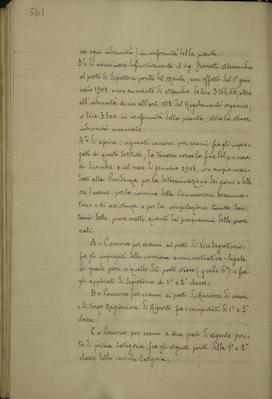 561
sa ogni indennità) in conformità della pianta.
3° di nominare definitivamente il Sig. Alessandro
al posto di Ispettore perito del Monte, con effetto dal 1° gen-
naio 1908 con aumento di stipendio da lire 3166,66, oltre
all'indennità di cui all'art. 103 del Regolamento organico,
a lire 3500 in conformità della pianta, oltre la stessa
indennità accennata.
4° di aprire i seguenti concorsi per esami fra gli impie-
gati di questo Istituto, da tenersi verso la fine del p.v. mese
di Dicembre e nel mese di Gennaio 1908, con ampio man-
dato alla Presidenza per la determinazione dei giorni e delle
ore d'esame, per la nomina delle Commissioni esamina-
trici e di assistenza e per la compilazione tanto dei
temi delle prove scritte quanto dei programmi delle prove
orali:
A = Concorso per esami al posto di Vice Segretario,
fra gli impiegati della carriera amministrativa-legale
di grado pari a quello del posto stesso (grado 6°) e fra
gli applicati di Segreteria di 1ª e 2ª classe;
B = Concorso per esami ai posti di
e di terzo Ragioniere di Riparto fra i computisti di 1ª e 2ª
classe;
C = Concorso per esami a due posti di aggiunto peri-
to di prima categoria, fra gli aggiunti periti della 1ª e 2ª
classe della seconda categoria;